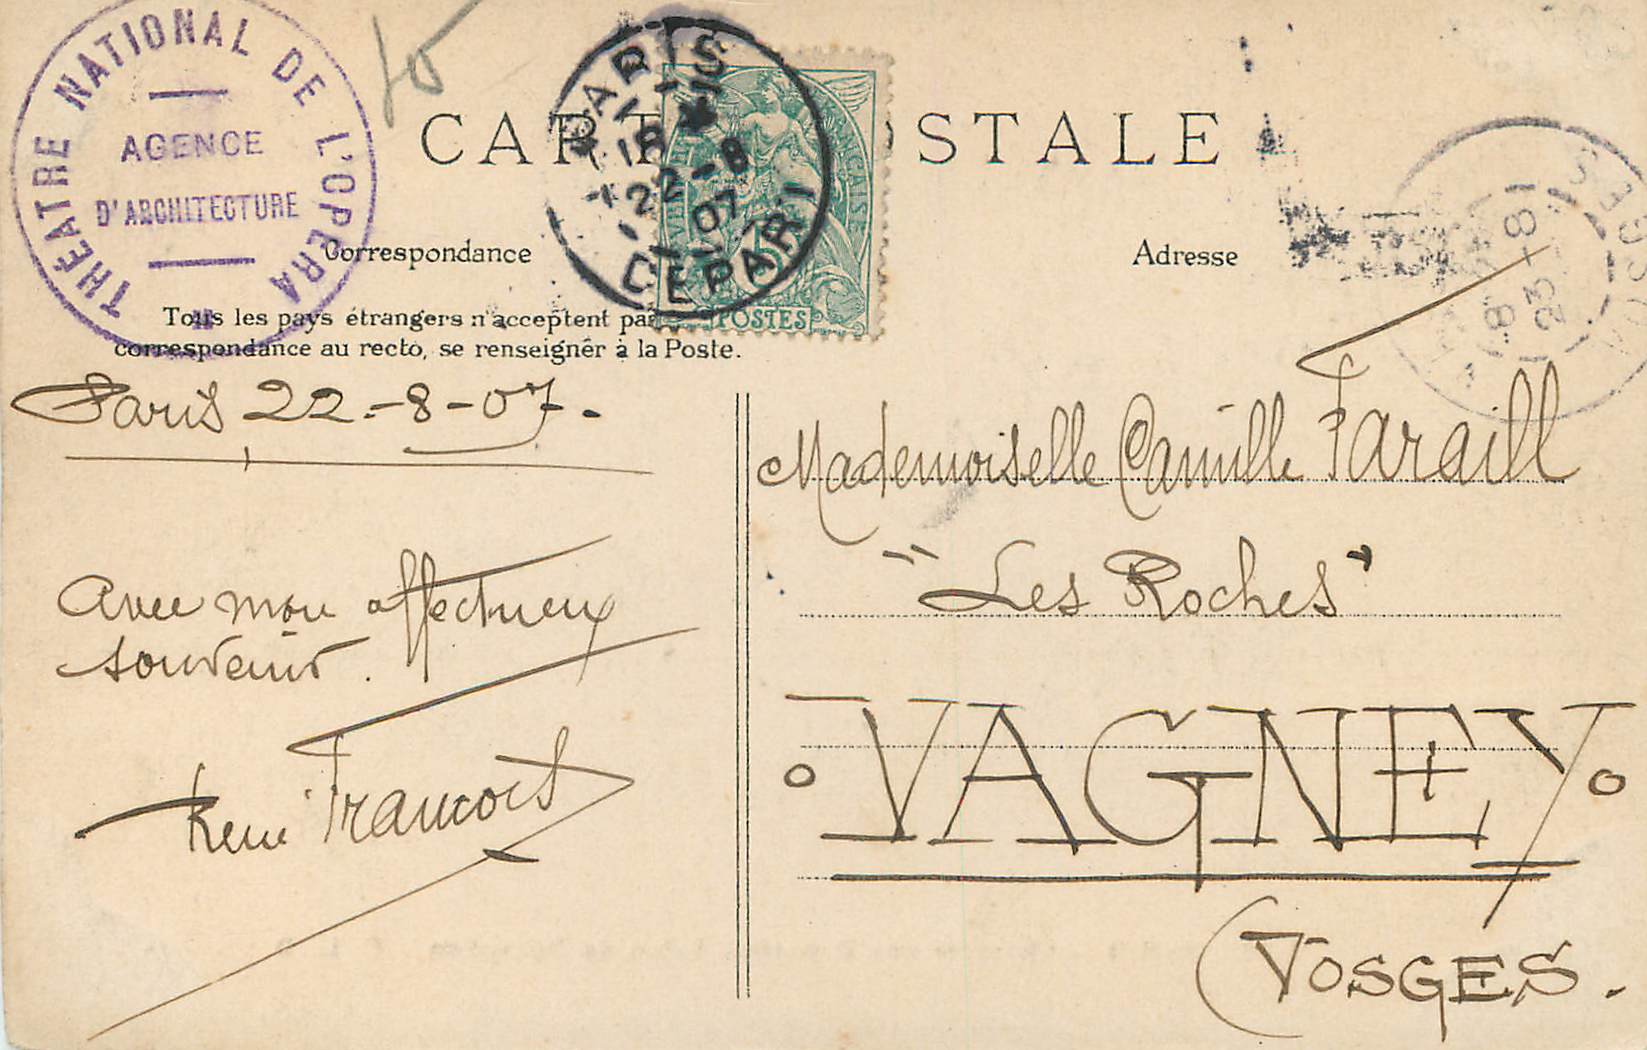 THÉATRE NATIONAL DE L'OPÉRA
AGENCE
D'ARCHITECTURE
CARTE POSTALE
PARIS
18
22 - 8
07
DEPART
5
POSTES
VOSGES
8
23 - 8
Correspondance
Adresse
Tous les pays étrangers n'acceptent pas
correspondance au recto, se renseigner à la Poste.
Paris 22-8-07.
Avec mon affectueux
souvenir.
René François
Mademoiselle Camille Faraill
"Les Roches"
VAGNEY
(VOSGES.